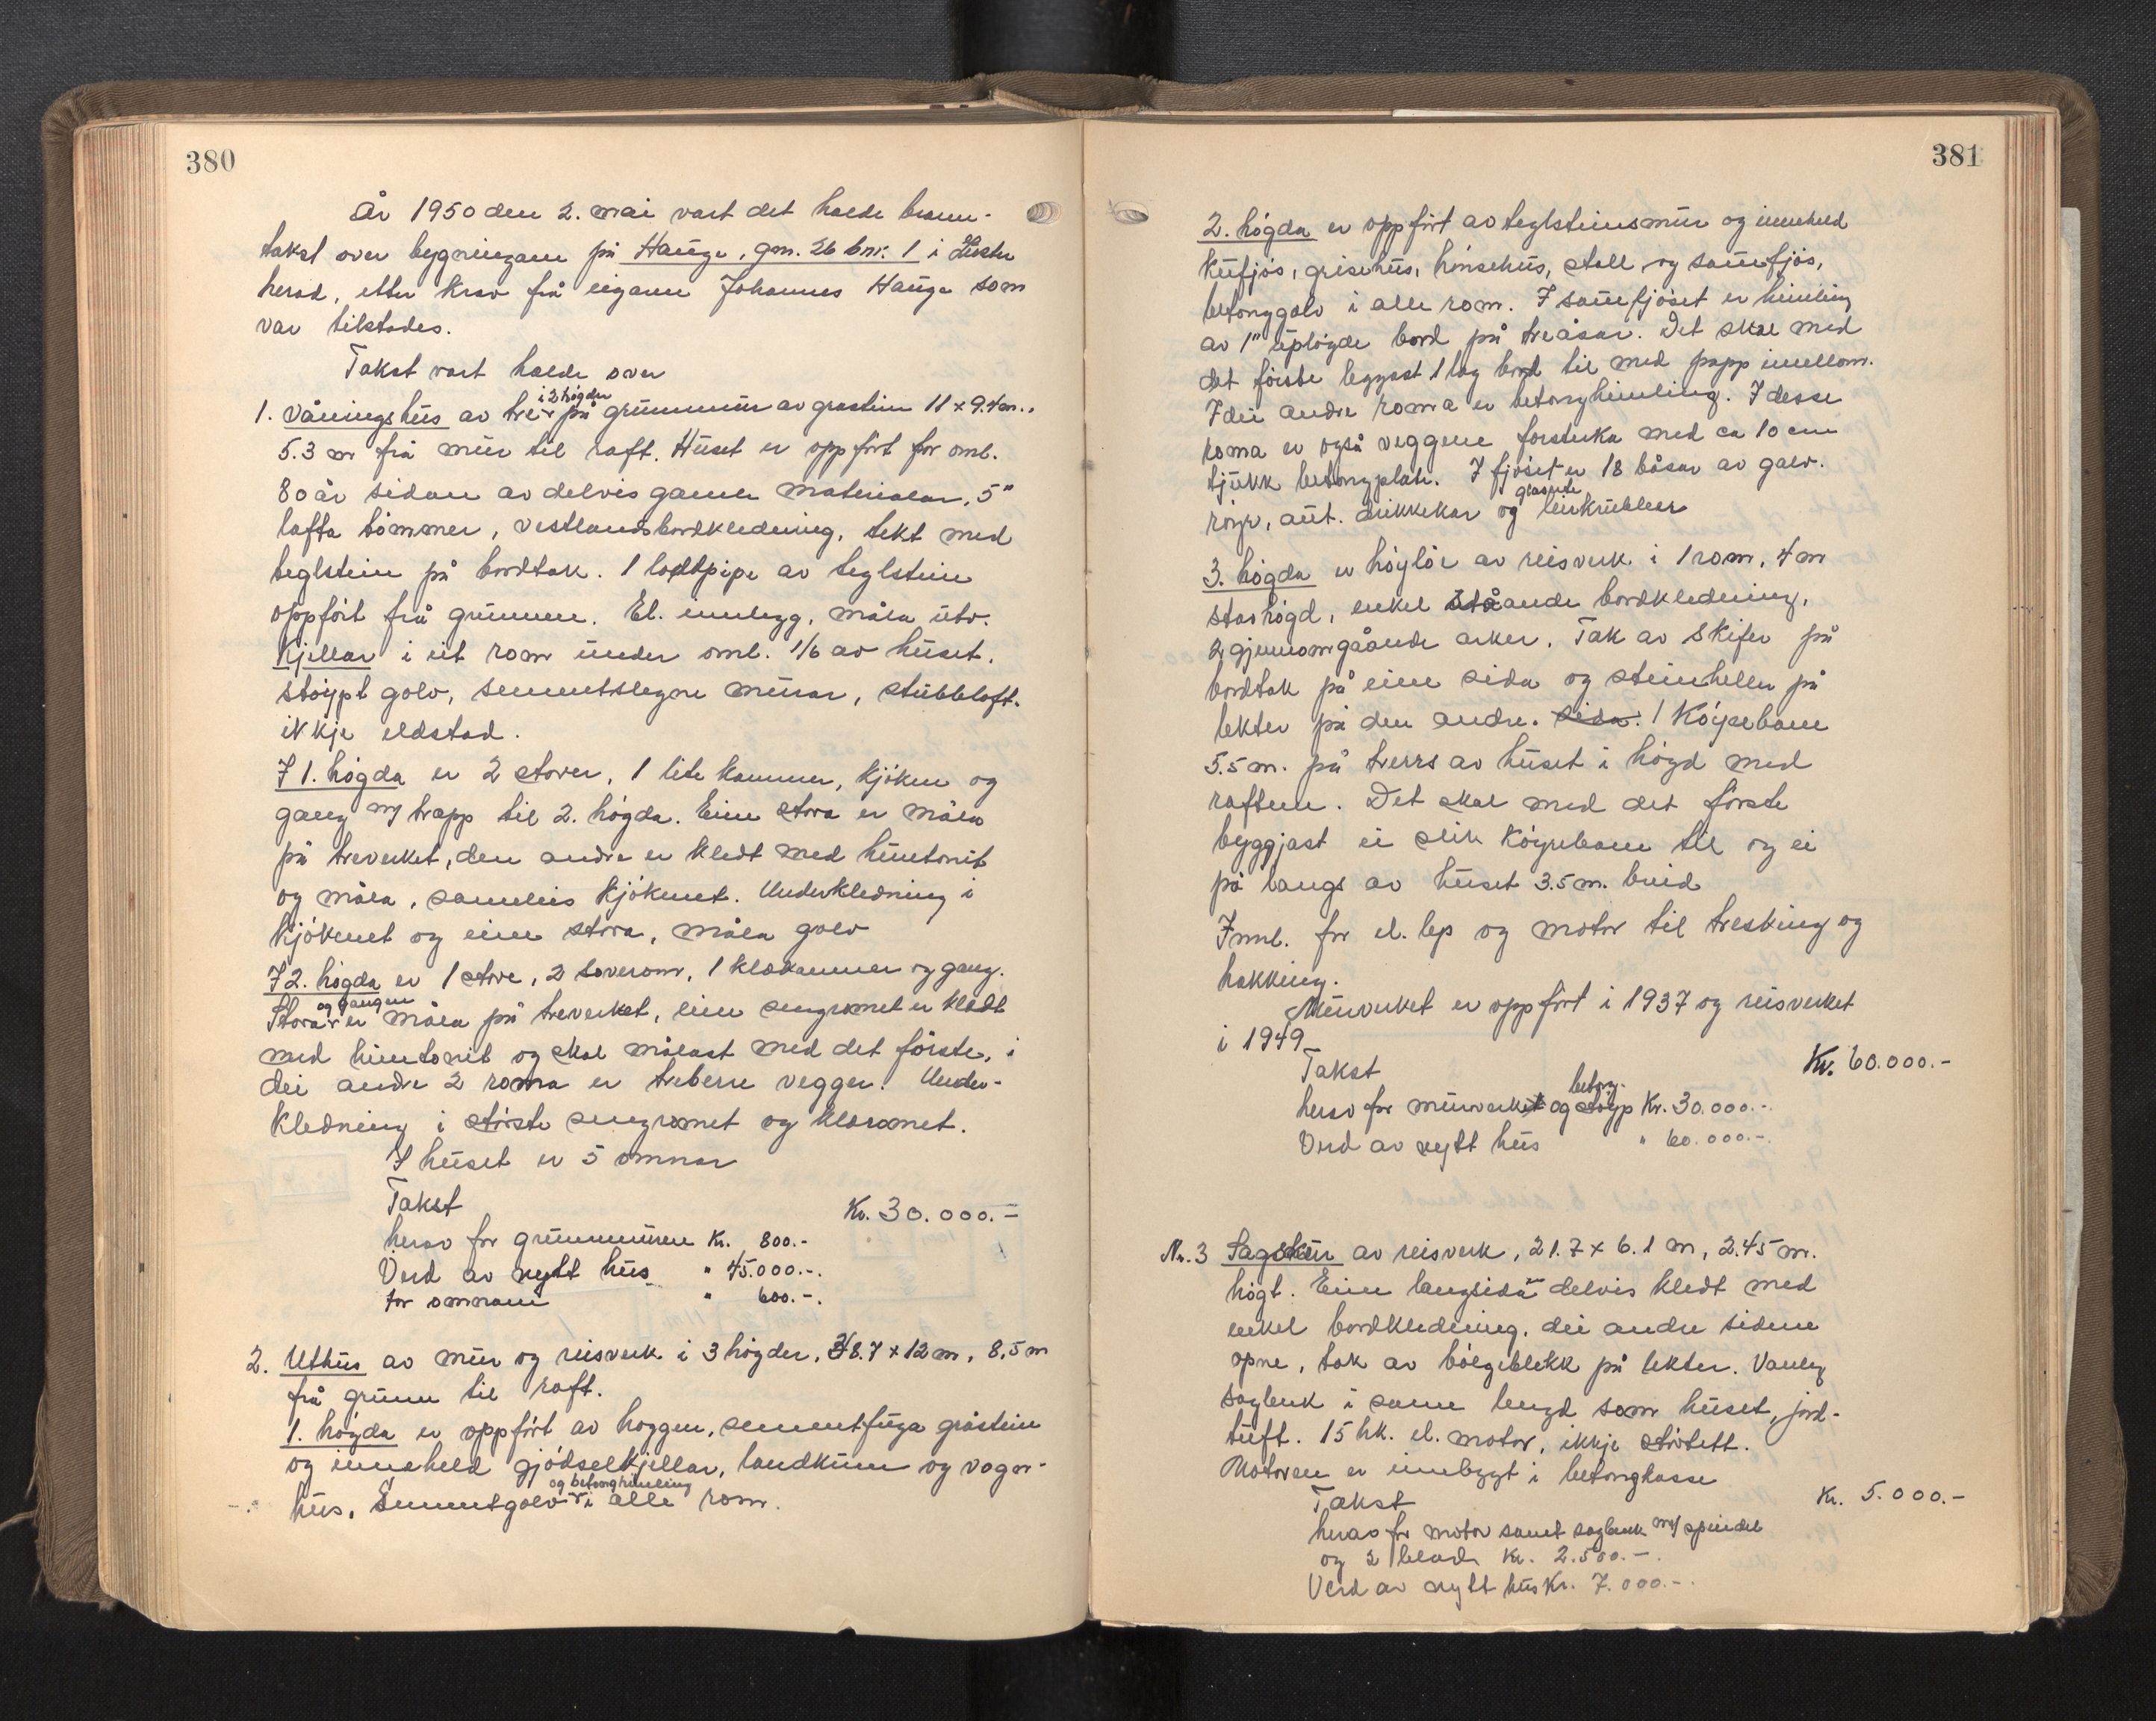 380
År 1950 den 2. mai vart det halde brann-
takst over bygningane på Hauge, gnr. 26 bnr. 1 i Luster
herad, etter krav frå eigaren Johannes Hauge som
var tilstades.
Takst vart halde over
1. Våningshus av tre i 2 högder på grunnmur av gråstein 11 x 9.4 m.,
5.3 m frå mur til raft. Huset er oppfört for oml.
80 år sidan av delvis gamle materialar, 5"
lafta tömmer, vestlandsbordkledning, tekt med
teglstein på bordtak. 1 loddpipe av teglstein
oppfört frå grunnen. El. innlegg, måla utv.
Kjellar i eit rom under oml. 1/6 av huset,
stöypt golv, sementslegne murar, stubbloft.
ikkje eldstad.
I 1. högda er 2 stover, 1 lite kammer, kjöken og
gang m/ trapp til 2. högda. Eine stova er måla
på treverket, den andre er kledt med huntonit
og måla, sameleis kjökenet. Underkledning i
kjökenet og eine stova, måla golv
I 2. högda er 1 stove, 2 soverom, 1 klekammer og gang.
Stova og gangen er måla på treverket, eine sengromet er kledt
med huntonit og skal målast med det förste, i
dei andre 2 roma er treberre vegger. Under-
kledning i störste sengromet og kleromet.
I huset er 5 omnar
Takst Kr. 30.000.-
herav for grunnmuren Kr. 800.-
Verd av nytt hus " 45.000.-.
for omnane " 600.-.
2. Uthus av mur og reisverk i 3 högder, 38.7 x 12 m, 8,5 m
frå grunn til raft.
1. högda er oppfört av hoggen, sementfuga gråstein
og inneheld gjödselkjellar, landkum og vogn-
hus, Sementgolv og betonghimling i alle rom.
381
2. högda er oppfört av teglsteinsmur og inneheld
kufjös, grisehus, hönsehus, stall og sauefjös,
betonggolv i alle rom. I sauefjöset er himling
av 1" uplögde bord på treåsar. Det skal med
det förste leggast 1 lag bord til med papp imellom.
I dei andre roma er betonghimling. I desse
roma er også veggene forsterka med ca 10 cm
tjukk betongplate. I fjöset er 18 båsar av galv.
röyr, aut. drikkekar og glaserte leirkrubber
3. högda er höylöe av reisverk i 1 rom, 4 m
stavhögd, enkel ståande bordkledning,
2 gjennomgåande arker. Tak av skifer på
bordtak på eine sida og steinheller på
lekter på den andre. sida. 1 Köyrebane
5.5 m. på tverrs av huset i högd med
raftene. Det skal med det förste
byggjast ei slik köyrebane til og ei
på langs av huset 3.5 m. breid
Innl. for el. lys og motor til tresking og
hakking.
Murverket er oppfört i 1937 og reisverket
i 1949
Takst Kr. 60.000.-
herav for murverket og betong- stöyp Kr. 30.000.-.
Verd av nytt hus " 60.000.-.
Nr. 3 Sagskur av reisverk, 21.7 x 6.1 m, 2.45 m.
högt. Eine langsida delvis kledt med
enkel bordkledning, dei andre sidene
opne, tak av bölgeblekk på lekter. Vanleg
sagbenk i same lengd som huset, jord-
tuft. 15 hk. el. motor, ikkje stövtett.
Motoren er innbygt i betongkasse
Takst Kr. 5.000.-
herav for motor samt sagbenk m/ spindel
og 2 blad Kr. 2.500.-.
Verd av nytt hus Kr. 7.000.-.